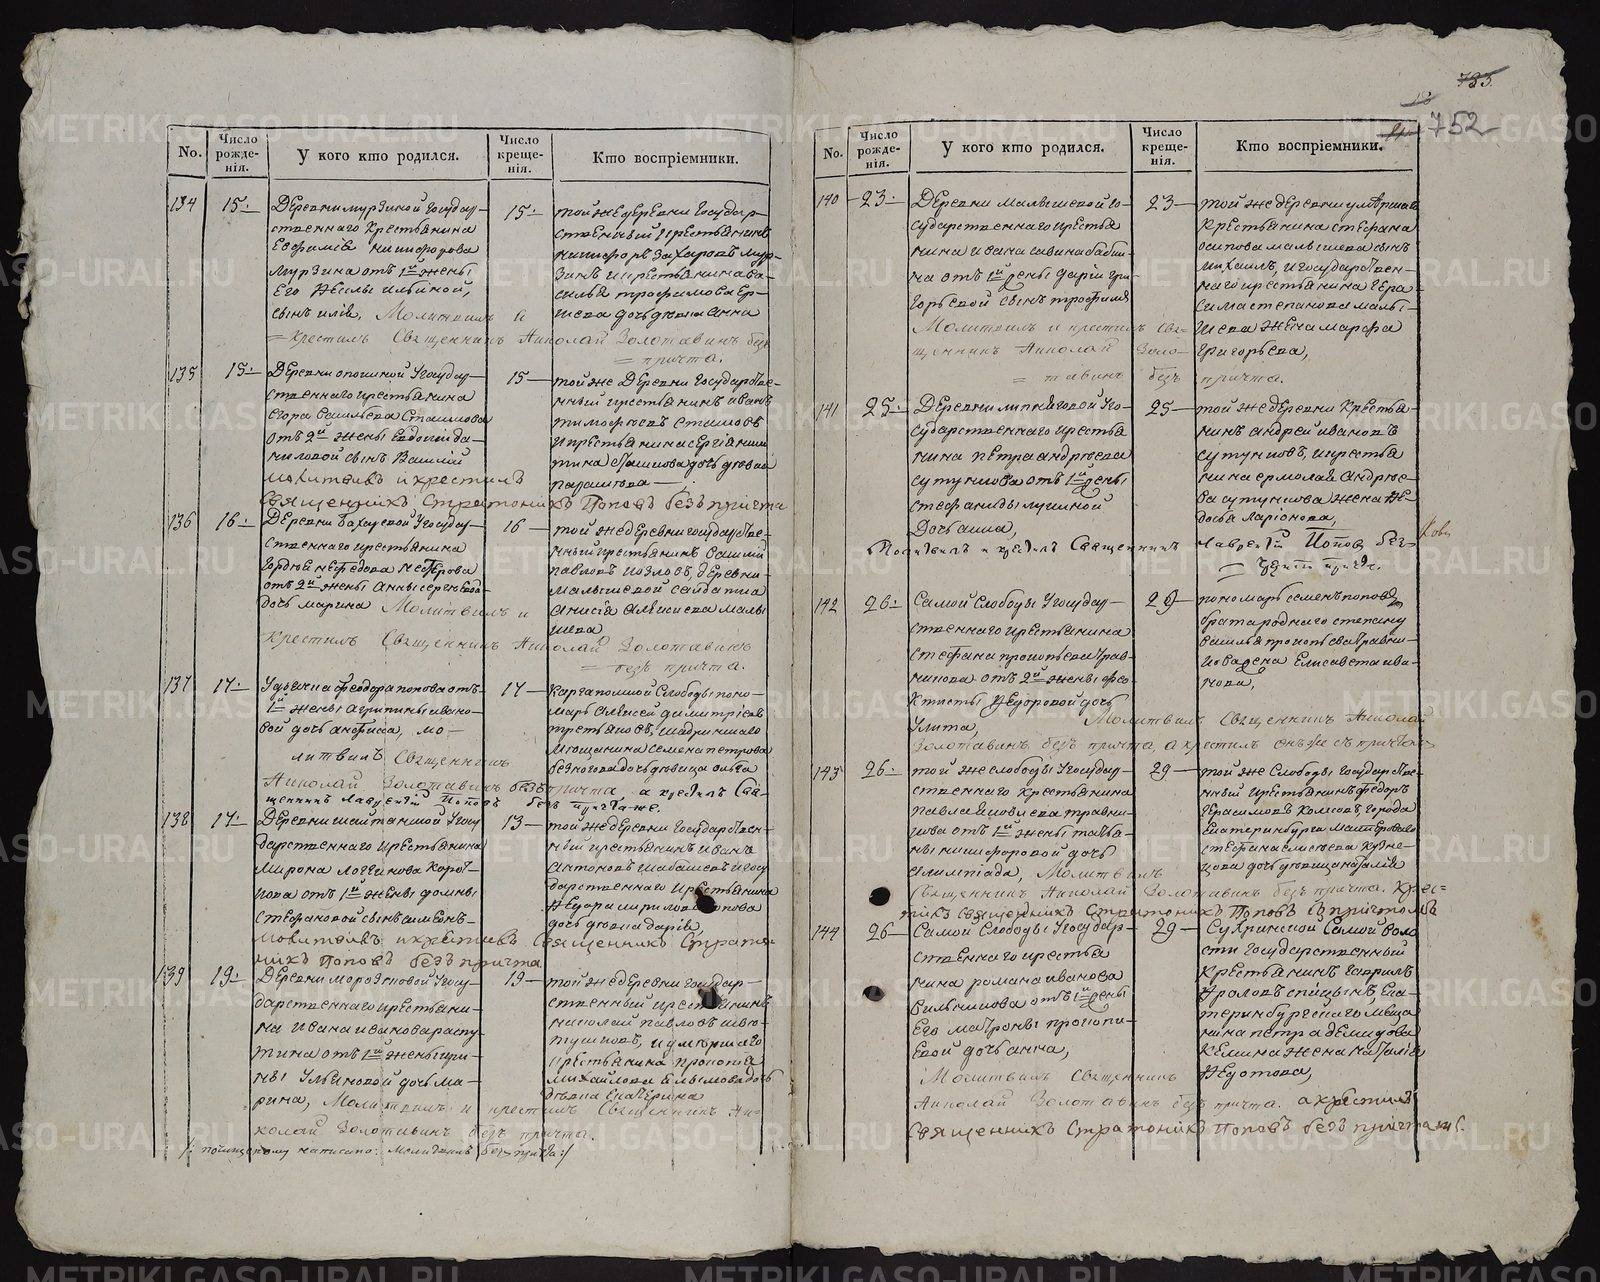 735.
752
No.
Число рожде-нія.
У кого кто родился.
Число креще-нія.
Кто воспріемники.
134
15
Деревни мурзиной Государ-
ственнаго Крестьянина
Евфимія никифорова
Мурзина отъ 1й жены
Его ильиной,
сынъ илія, Молитвилъ и
крестилъ Священникъ Николай Золотавинъ безъ
причта.
15
той же деревни Государ-
ственный крестьянинъ
никифоръ Захаровъ мур-
зинъ и крестьянина ва-
силья трофимова Ер-
шева дочь девка анна
135
15
Государ-
ственнаго крестьянина
Егора васильева Сташкова
отъ 2й жены Евдокеи да-
ниловой сынъ Василій
молитвилъ и крестилъ
Священникъ Стратоникъ Поповъ безъ причта
15
той же Деревни Государстве-
нный крестьянинъ иванъ
тимофеевъ сташковъ
и крестьянина сергія ники-
тина дочь девка
136
16
Деревни у Государ-
ственнаго крестьянина
нефедова
отъ 2й жены анны
дочь марина Молитвилъ и
крестилъ Священникъ Николай Золотавинъ
безъ причта.
16
той же деревни государстве-
нный крестьянинъ василій
павловъ козловъ, деревни
малышевой салдатка
анисія алексиева малы
шева
137
17
У дьячка феодора попова отъ
1й жены агрипины ивано-
вой дочь анфиса, мо-
литвилъ Священникъ
Николай Золотавинъ безъ причта, а крестилъ Свя-
щенникъ Лаврентій Поповъ безъ причта же.
17
Каргапольской Слободы поно-
марь Алексей димитріевъ
третьяковъ, шадринскаго
мещанина семена петрова
дочь девица ольга
138
17
Деревни шайтанской у Госу
дарственнаго крестьянина
Мирона логгинова Корот-
кова отъ 1й жены домны
стефановой сынъ симеонъ
Молитвилъ и крестилъ Священникъ Страто-
никъ Поповъ безъ причта
13
той же деревни Государствен-
ный крестьянинъ иванъ
антоновъ шабашевъ и госу
дарственнаго крестьянина
кирилова попова
дочь девка дарія,
139
19
Деревни морозковой у Госу
дарственнаго крестьяни-
на ивана иванова распу-
тина отъ 1й жены ири-
ны ульяновой дочь ма-
рина, Молитвилъ и крестилъ Священникъ Ни-
колай Золотавинъ безъ причта.
/: почищеному написано: молитвилъ безъ причта :/
19
той же деревни Государ-
ственный крестьянинъ
николай павловъ
и умершаго
крестьянина прокопія
михайлова дочь
девка Екатерина
No.
Число рожде-нія.
У кого кто родился.
Число креще-нія.
Кто воспріемники.
140
23
Деревни малышевой го-
сударственнаго крестья
нина ивана савина бабки-
на отъ 1й жены дарьи гри-
горьевой сынъ трофимъ
Молитвилъ и крестилъ Свя-
щенникъ Николай Золо-
тавинъ безъ причта.
23
той же деревни умершаго
крестьянина стефана
осипова малышева сынъ
михаилъ, и государствен-
наго крестьянина гера-
сима степанова малы-
шева жена марфа
григорьева,
141
25
Деревни липняговой у го-
сударственнаго крестья
нина петра андреева
сутункова отъ 1й жены
стефаниды лукиной
Дочь анна,
Молитвилъ и крестилъ Священникъ Лаврентій Поповъ без-
причта.
25
той же деревни Крестья-
нинъ андрей ивановъ
сутунковъ, и крестья
нина ермолая андрее-
ва сутункова жена Фе-
досья ларіонова,
142
26
Самой Слободы у Государ-
ственнаго крестьянина
стефана прокопьева трав-
никова отъ 2й жены фео-
ктисты Федоровой дочь
Улита,
Молитвилъ Священникъ Николай
Золотавинъ безъ причта, а крестилъ онъ же съ причтомъ
29
пономарь семенъ поповъ
брата роднаго степану
василья прокопьева травни-
кова жена Елисавета ива-
нова,
143
26
той же слободы у Государ-
ственнаго крестьянина
травни-
кова отъ 1й жены татья-
ны никифоровой дочь
олимпіада, Молитвилъ
Священникъ Николай Золотавинъ безъ причта. Крес-
тилъ Священникъ Стратоникъ Поповъ съ причтомъ
29
той же Слободы Государстве-
нный крестьянинъ федоръ
герасимовъ города
Екатеринбурга
стефана елисеева кузне-
цова дочь девица наталія
144
26
Самой Слободы у Государ-
ственнаго крестья
нина романа иванова
отъ 1й жены
Его матроны прокопи-
евой дочь анна,
Молитвилъ Священникъ
Николай Золотавинъ безъ причта. а крестилъ
Священникъ Стратоникъ Поповъ безъ причта
29
Сухринской Самой воло
сти государственный
крестьянинъ гаврилъ
фроловъ спицынъ, Ека-
теринбургскаго меща
нина петра демидова
жена наталія
Федотова,